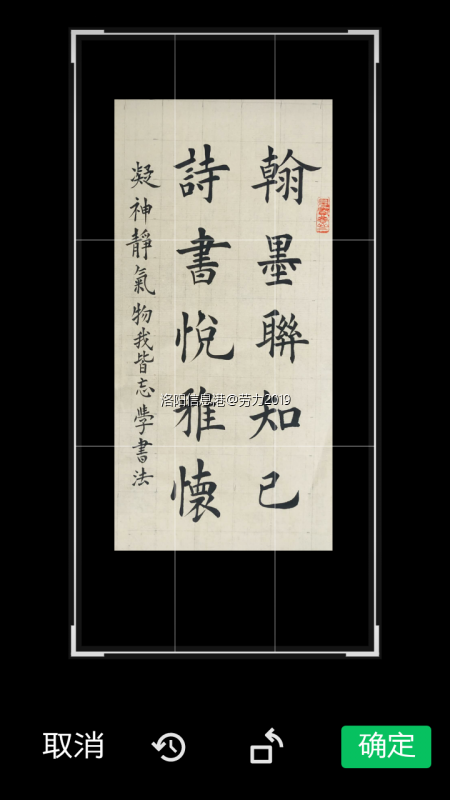 翰墨聯知己
詩書悅雅懷
凝神靜氣物我皆忘學書法
洛阳信息港@劳力2019
取消
确定